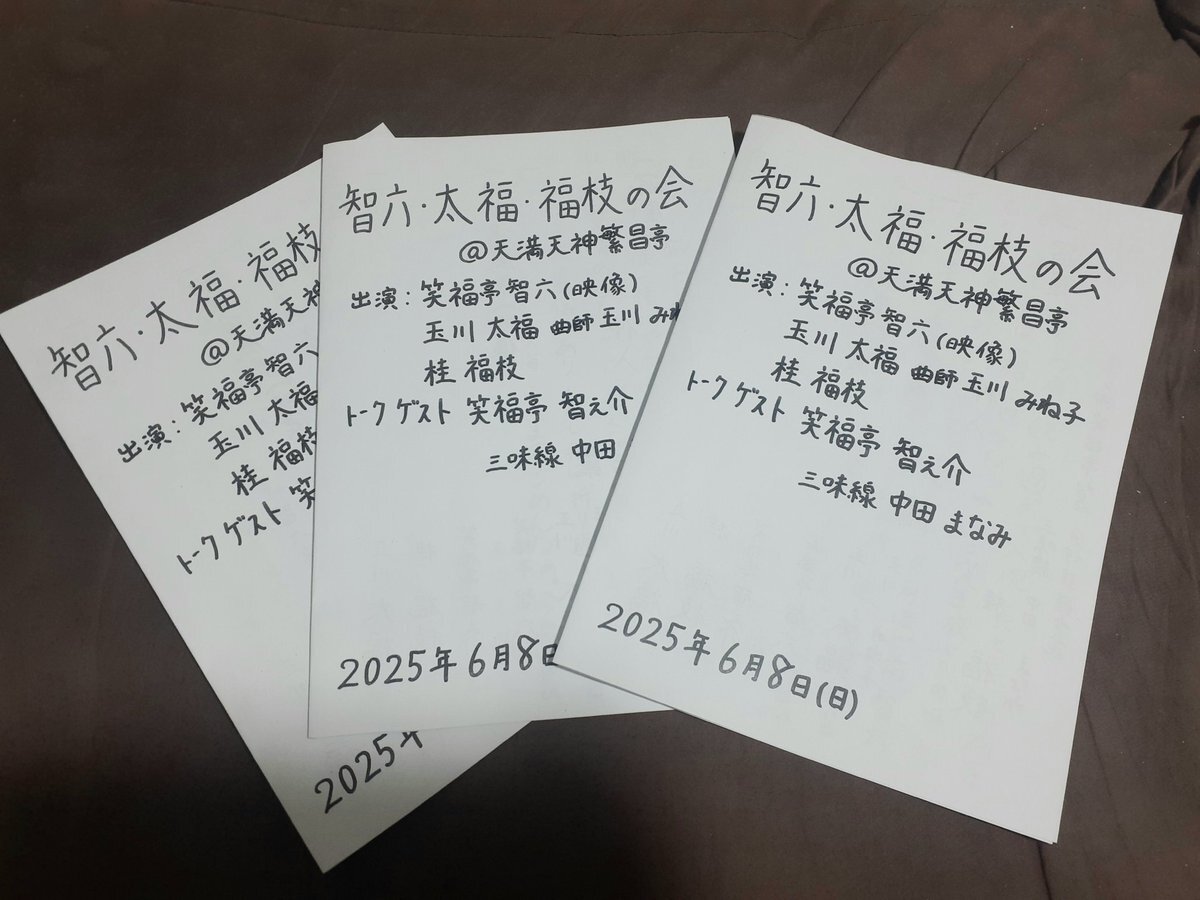 智六・太福・福枝
@天満天神
出演：笑福亭智六
玉川 太福
桂 福枝
トークゲスト 笑
2025年
智六・太福・福枝の会
@天満天神繁昌亭
出演：笑福亭智六(映像)
玉川 太福 曲師 玉川 みね
桂 福枝
トークゲスト 笑福亭 智之介
三味線 中田
2025年6月8日
智六・太福・福枝の会
@天満天神繁昌亭
出演：笑福亭智六(映像)
玉川 太福 曲師 玉川 みね子
桂 福枝
トークゲスト 笑福亭 智之介
三味線 中田 まなみ
2025年6月8日(日)